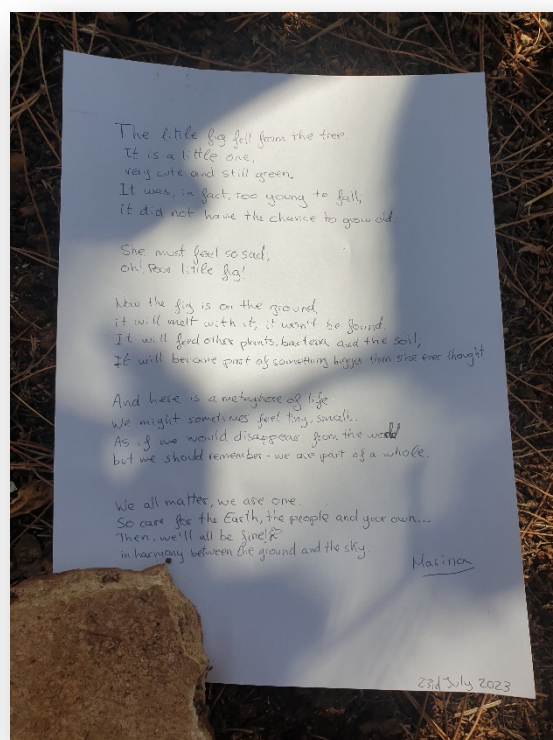 The little fig fell from the tree.
It is a little one,
very cute and still green.
It was, in fact, too young to fall,
it did not have the chance to grow old.
She must feel so sad,
oh! Poor little fig!
Now the fig is on the ground,
it will melt with it, it won't be found.
It will feed other plants, bacteria and the soil,
It will become part of something bigger than she ever thought
And here is a metaphore of life
We might sometimes feel tiny, small...
As if we would disappear from the world
but we should remember - we are part of a whole.
We all matter, we are one.
So care for the Earth, the people and your own...
Then, we'll all be fine
in harmony between the ground and the sky.
Marina
23rd July 2023